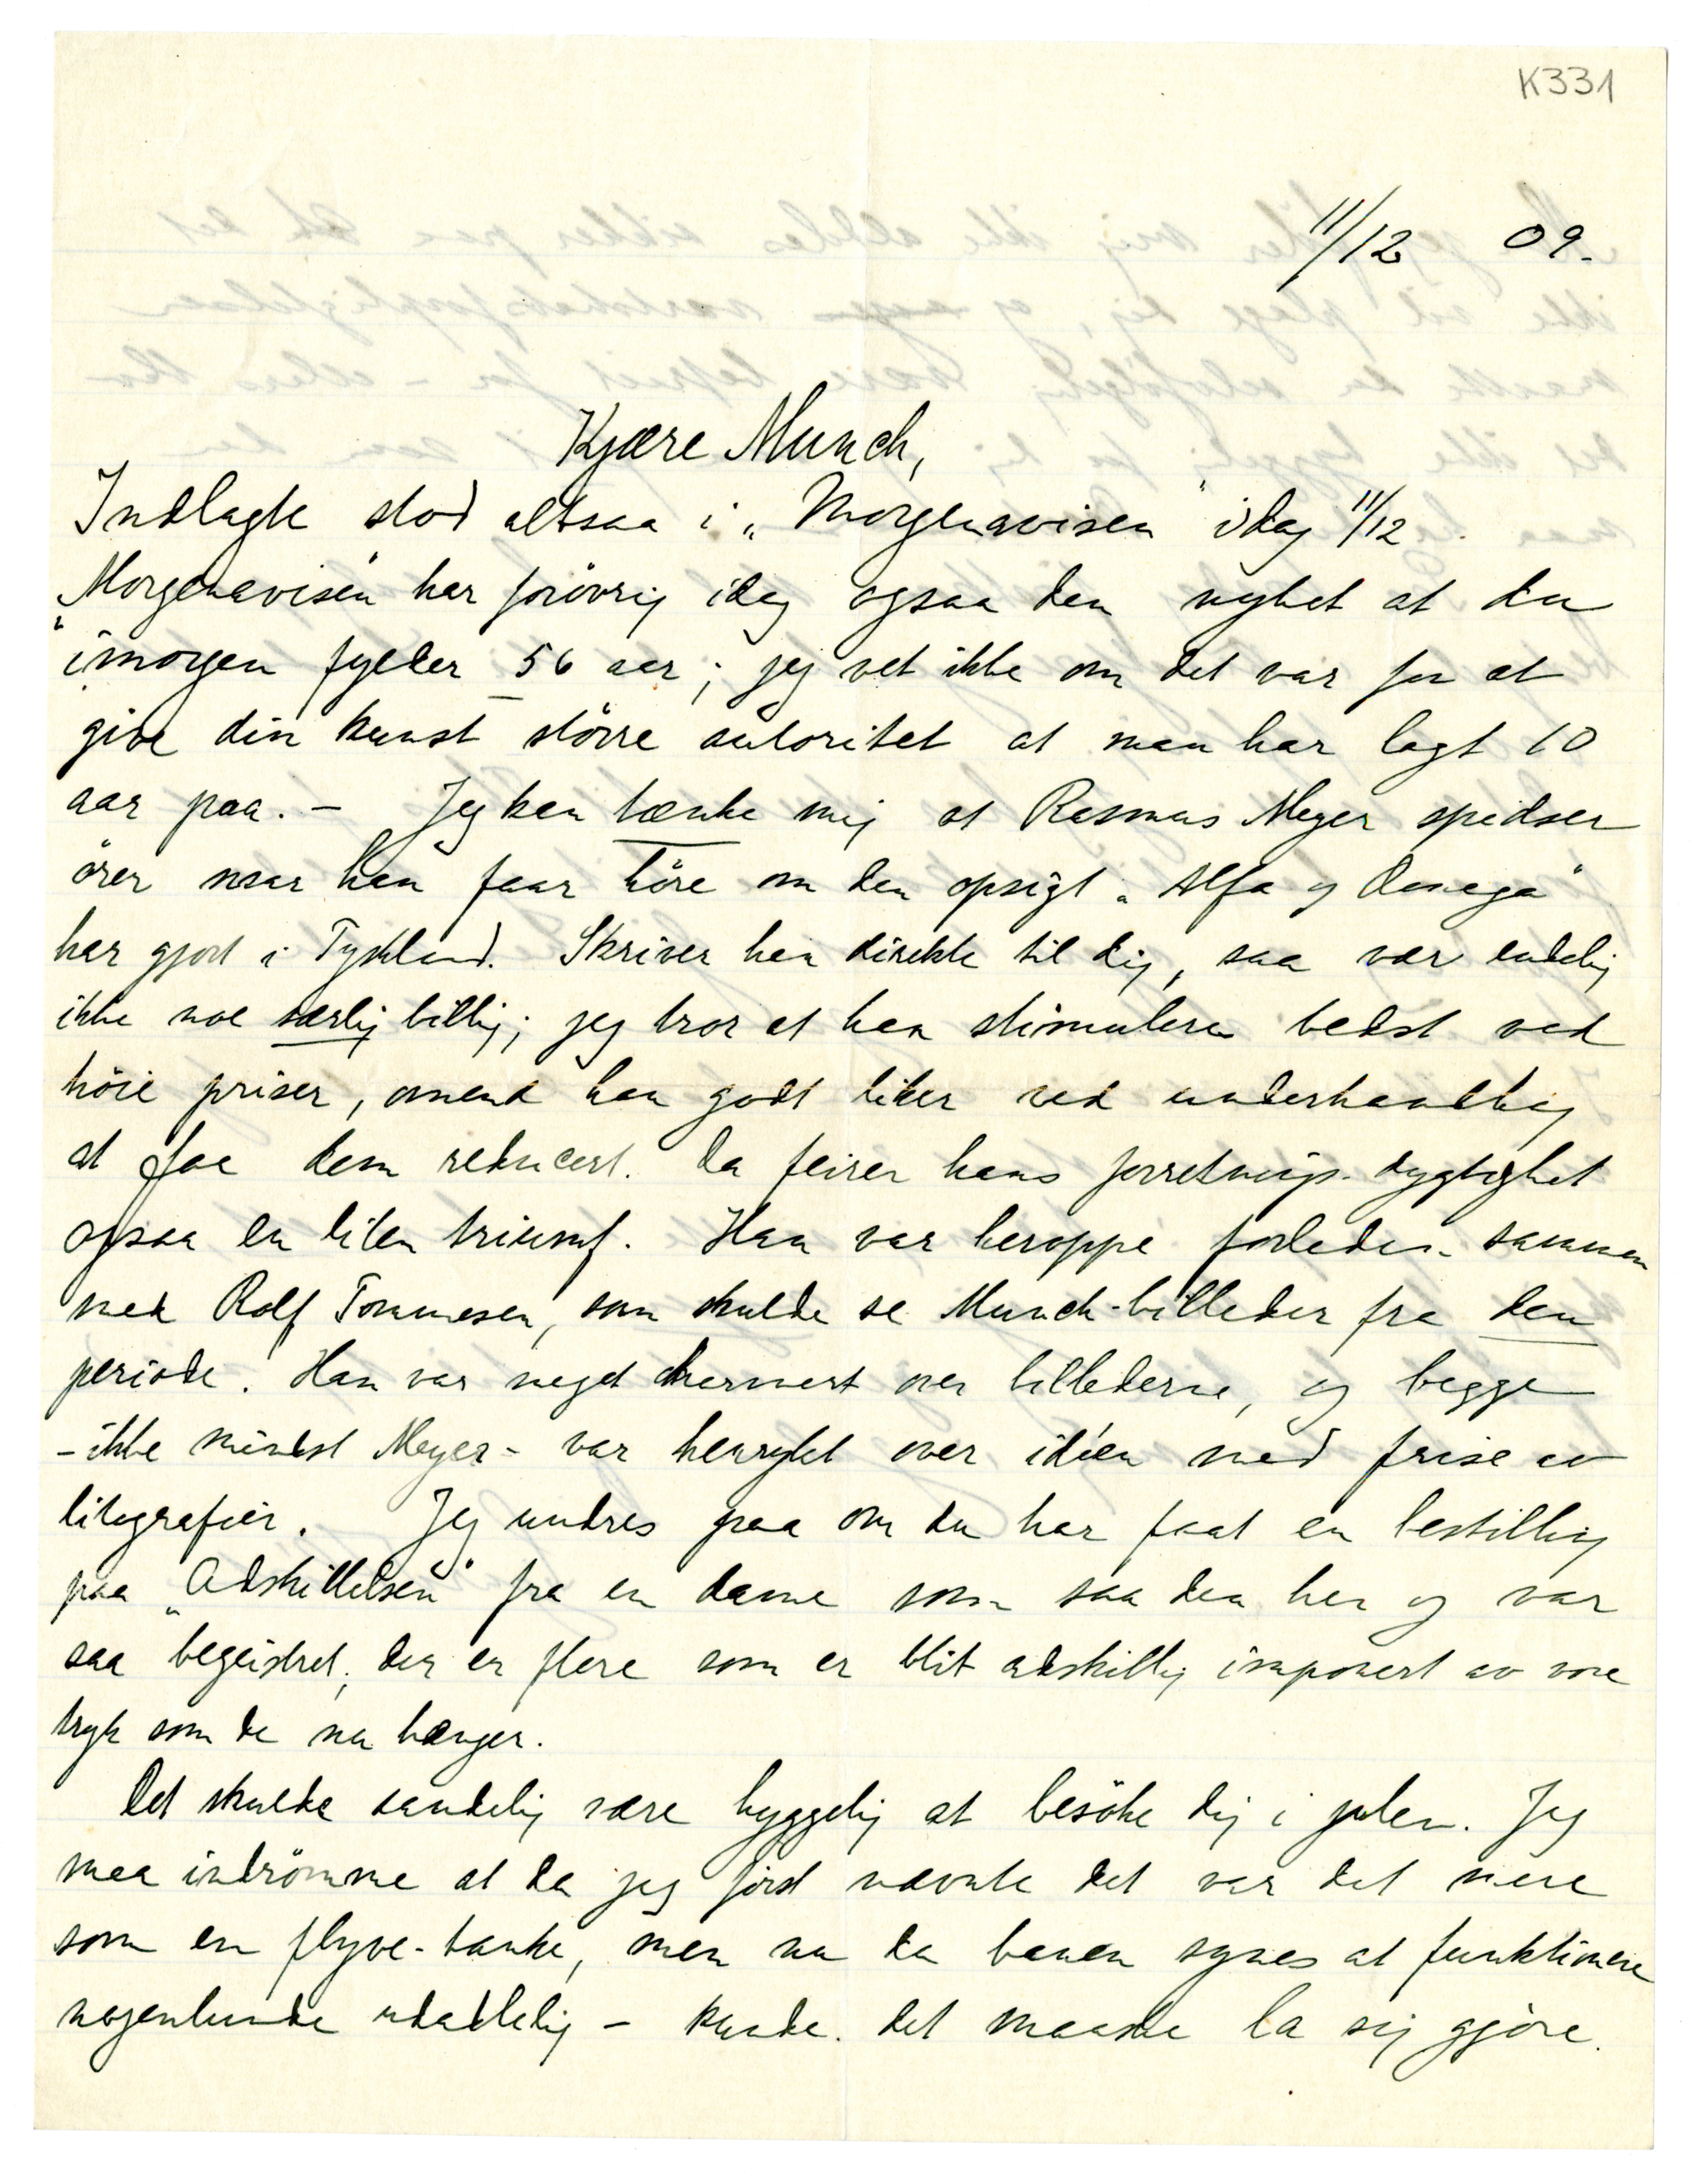 K331
11/12 09.
Kjære Munch,
Indlagte stod altsaa i „Morgenavisen" idag 11/12.
„Morgenavisen" har forövrig idag ogsaa den nyhet at du
imorgen fylder 56 aar; jeg vet ikke om det var for at
give din kunst större autoritet at man har lagt 10
aar paa. – Jeg kan tænke mig at Rasmus Meyer spidser
örer naar han faar höre om den opsigt „Alfa og Omega"
har gjort i Tyskland. Skriver han direkte til dig, saa vær endelig
ikke noe særlig billig; jeg tror at han stimuleres bedst ved
höie priser, omend han godt liker ved underhandling
at faa dem reducert. Da feirer hans forretnings-dygtighet
ogsaa en liten triumf. Han var heroppe forleden sammen
med Rolf Tommesen, som skulde se Munch-billeder fra den
periode. Han var meget over billederne, og begge
– ikke mindst Meyer – var henrykt over idéen med frise av
litografier. Jeg undres paa om du har faat en bestilling
paa „Adskillelsen" fra en dame som saa den her og var
saa begeistret; der er flere som er blit adskillig imponert av vore
tryk som de nu hænger.
Det skulde sandelig være hyggelig at besöke dig i julen. Jeg
maa indrömme at da jeg först nævnte det var det mere
som en flyve-tanke, men nu da banen synes at funktionere
nogenlunde udadlelig – kunde det maaske la sig gjöre.